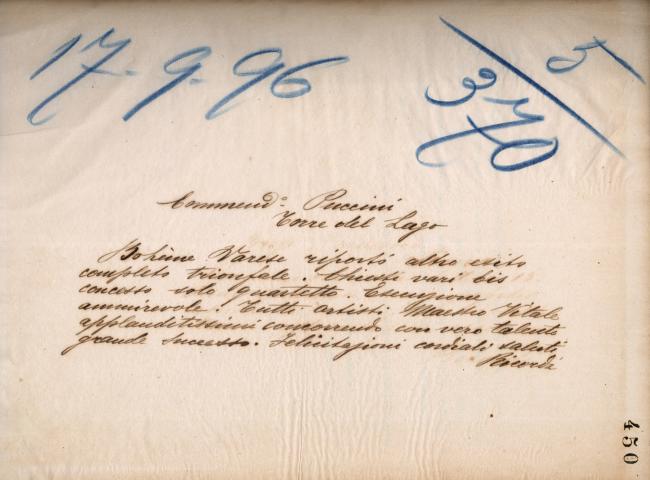 17-9-96
5
370
Commend.e Puccini
Torre del Lago
Bohème Varese riportò altro esito
completo trionfale. Chiesti vari bis
concesso solo quartetto. Esecuzione
ammirevole. Tutti artisti Maestro Vitale
applauditissimi concorrendo con vero talento
grande successo. Felicitazioni cordiali saluti
Ricordi
450